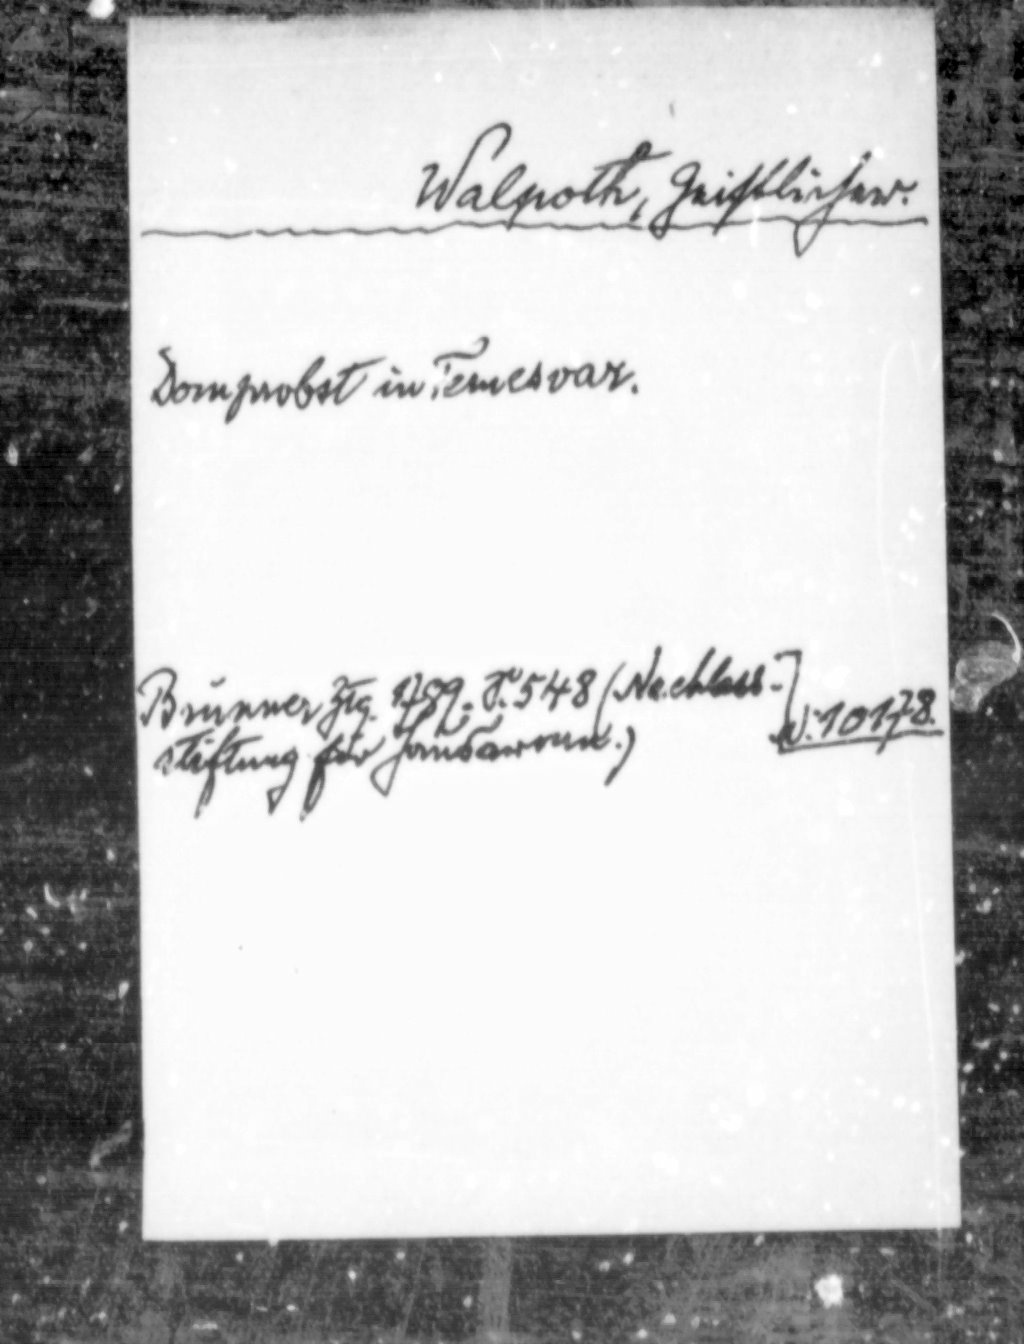 Walpoth, Geistlicher.
Domprobst in Temesvar.
Brünner Ztg. 1789. S. 548 (Nachlass-
stiftung für Hausarme.)
N. 10178.